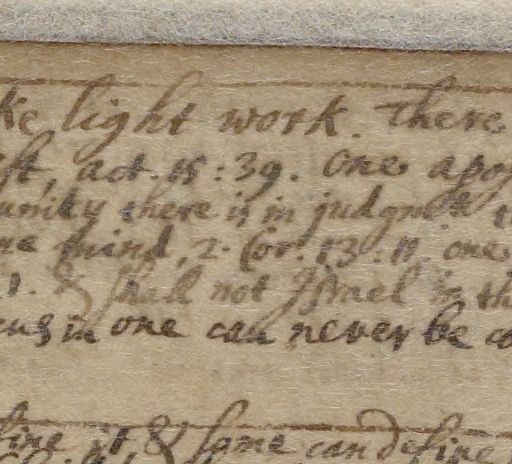 ke light work. There
act. 15: 39. One apos
unity there is in judgmt
one mind, 2. Cor. 13. 11. one
1. & shall not Israel in th
cus in one can never be co
fine it & some can define